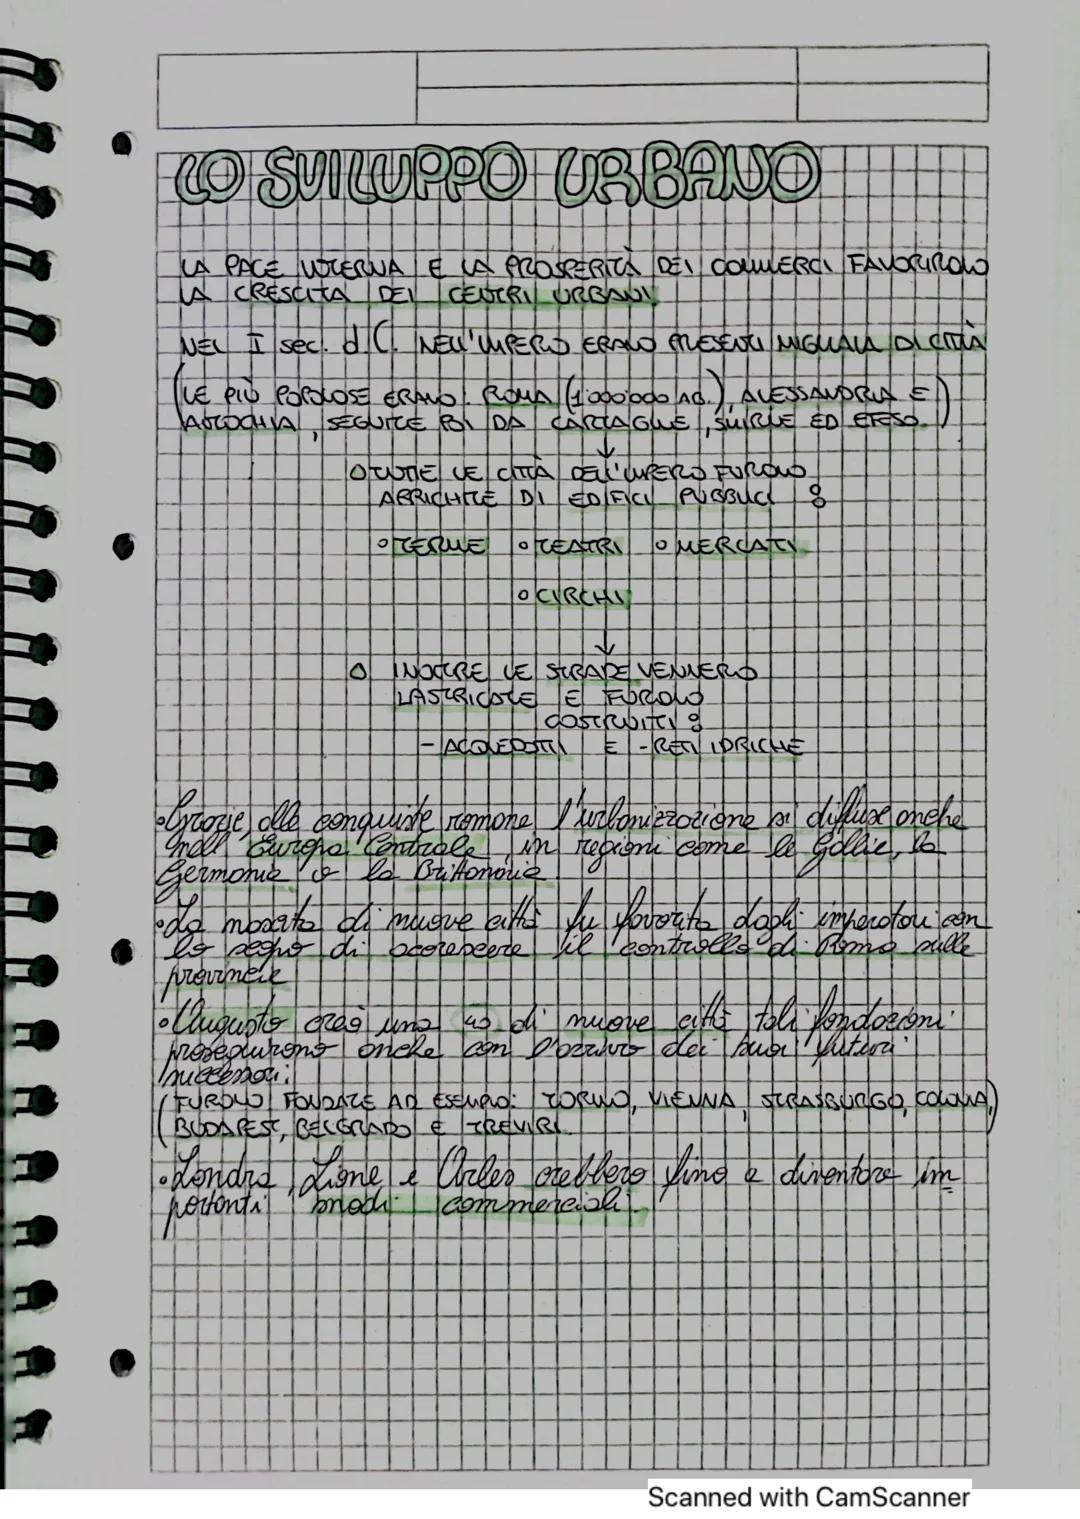 LO SVILUPPO URBANO
LA PACE INTERNA E LA PROSPERITÀ DEI COMMERCI FAVORIRONO
LA CRESCITA DEI CENTRI URBANI
NEL I sec. d.C. NELL'IMPERO ERANO PRESENTI MIGLIAIA DI CITTÀ
(LE PIÙ POPOLOSE ERANO: ROMA (1'000'000 AB.), ALESSANDRIA E
ANTIOCHIA, SEGUITE POI DA CARTAGINE, SMIRNE ED EFESO.)
↓
○ TUTTE LE CITTÀ DELL'IMPERO FURONO
ARRICHITE DI EDIFICI PUBBLICI :
○ TERME ○ TEATRI ○ MERCATI
○ CIRCHI
↓
○ INOLTRE LE STRADE VENNERO
LASTRICATE E FURONO
COSTRUITI :
- ACQUEDOTTI E - RETI IDRICHE
• Grazie alle conquiste romane l'urbanizzazione si diffuse anche
nell'Europa Centrale, in regioni come le Gallie, la
Germania o la Brittannia
• La nascita di nuove città fu favorita dagli imperatori con
lo di accrescere il controllo di Roma sulle
provincie
• Augusto creò una 40 di nuove città tali fondazioni
proseguirono anche con l'arrivo dei suoi futuri
successori:
(FURONO FONDATE AD ESEMPIO: TORINO, VIENNA, STRASBURGO, COLONIA,
BUDAPEST, BELGRADO E TREVIRI.)
• Londra, Lione e Arles crebbero fino a diventare im
portanti snodi commerciali.
Scanned with CamScanner